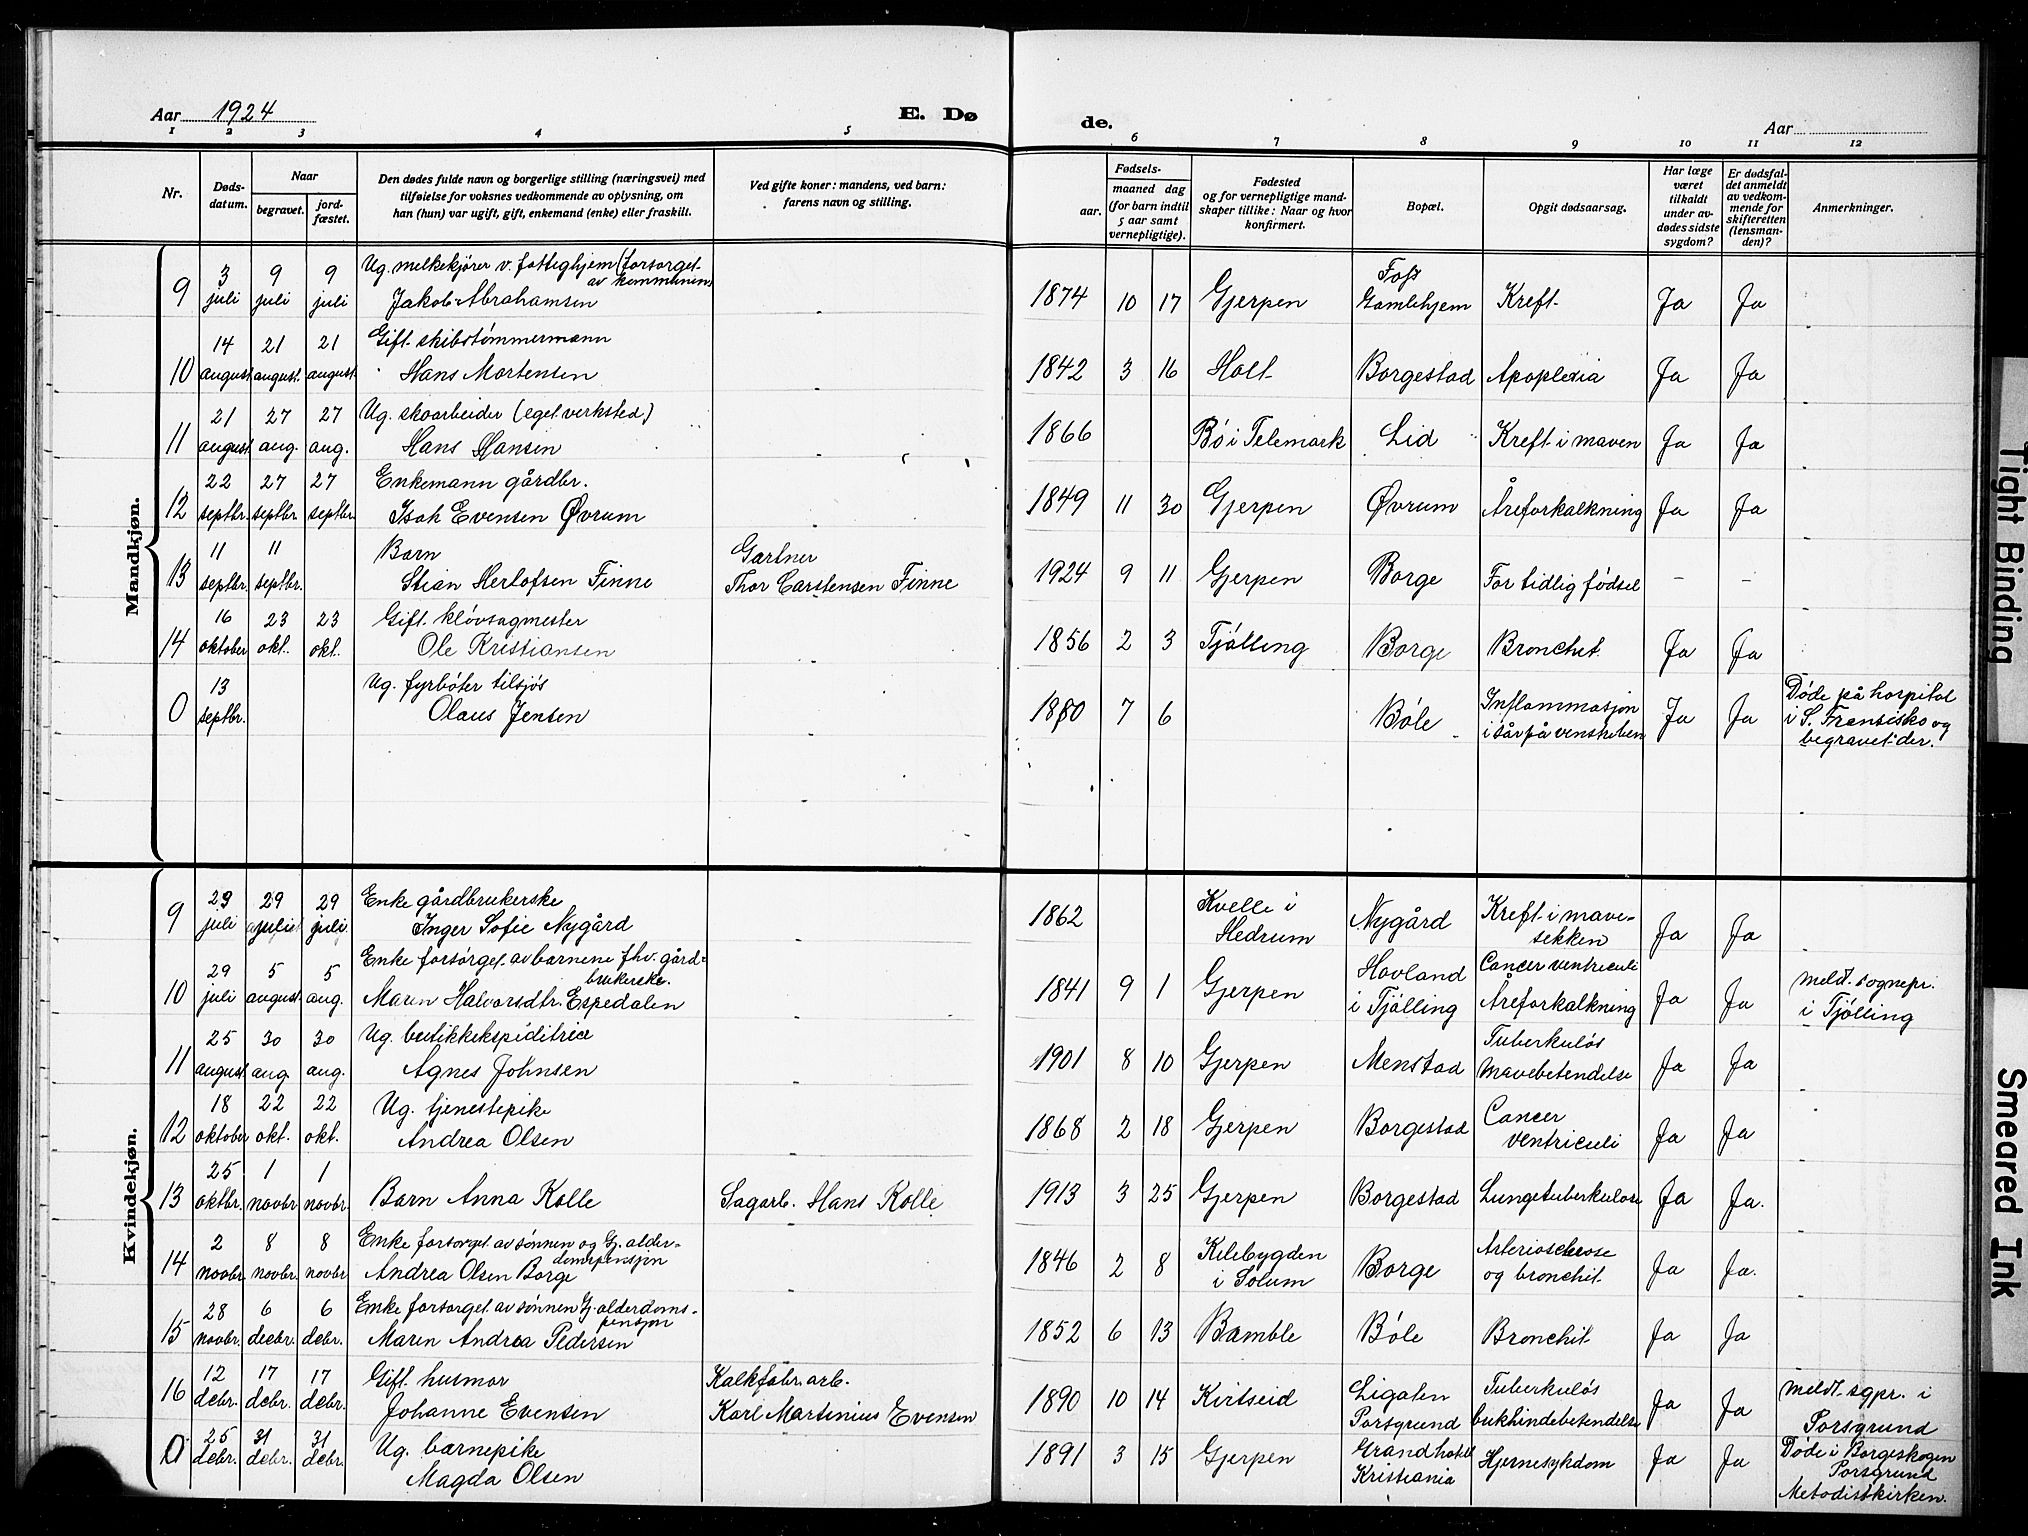 Aar 1924
E. Dø
de.
Aar
1 2 3 4 5 6 7 8 9 10 11 12
Nr.
Døds-
datum.
Naar
begravet.
jord-
fæstet.
Den dødes fulde navn og borgerlige stilling (næringsvei) med
tilføielse for voksnes vedkommende av oplysning, om
han (hun) var ugift, gift, enkemand (enke) eller fraskilt.
Ved gifte koner: mandens, ved barn:
farens navn og stilling.
Fødsels-
aar.
maaned dag
(for barn indtil
5 aar samt
vernepligtige).
Fødested
og for vernepligtige mand-
skaper tillike: Naar og hvor
konfirmert.
Bopæl.
Opgit dødsaarsag.
Har læge
været
tilkaldt
under av-
dødes sidste
sygdom?
Er dødsfal-
det anmeldt
av vedkom-
mende for
skifteretten
(lensman-
den)?
Anmerkninger.
Mandkjøn.
3 9 9 Ug. melkekjører v. fattighjem (forsørget
av kommunen)
9 juli juli juli Jakob Abrahamsen 1874 10 17 Gjerpen Foss
Gamlehjem Kreft Ja Ja
14 21 21 Gift skibstømmermann
10 august august august Hans Mortensen 1842 3 16 Holt Borgestad Apoplexia Ja Ja
21 27 27 Ug. skoarbeider (eget verksted)
11 august aug. aug. Hans Hansen 1866 Bø i Telemark Lid Kreft i maven Ja Ja
22 27 27 Enkemann gårdbr.
12 septbr. septbr. septbr. Isak Evensen Øvrum 1849 11 30 Gjerpen Øvrum Åreforkalkning Ja Ja
11 11 Barn Gartner
13 septbr. septbr. Stian Herlofsen Finne Thor Carstensen Finne 1924 9 11 Gjerpen Borge For tidlig fødsel - -
16 23 23 Gift kløvsagmester
14 oktober okt. okt. Ole Kristiansen 1856 2 3 Tjølling Borge Bronchit Ja Ja
13 Ug. fyrbøter tilsjøs
0 septbr. Olaus Jensen 1880 7 6 Bøle Inflammasjon
i sår på venstreben Ja Ja Døde på hospital
i S. Fransisko og
begravet der.
Kvindekjøn.
29 29 29 Enke gårdbrukerske
9 juli juli juli Inger Sofie Nygård 1862 Kvelle i
Hedrum Nygård Kreft i mave-
sekken Ja Ja
29 5 5 Enke forsørget av barnene fhv. gård-
brukerske.
10 juli august aug. Maren Halvorsdtr. Espedalen 1841 9 1 Gjerpen Hovland
i Tjølling Cancer ventriculi
Åreforkalkning Ja Ja meldt sognepr.
i Tjølling
25 30 30 Ug. butikkekspiditrice
11 august aug. aug. Agnes Johnsen 1901 8 10 Gjerpen Menstad Tuberkuløs
mavebetendelse Ja Ja
18 22 22 Ug. tjenestepike
12 oktober okt. okt. Andrea Olsen 1868 2 18 Gjerpen Borgestad Cancer
ventriculi Ja Ja
25 1 1
13 oktbr. novbr. novbr. Barn Anna Kolle Sagarb. Hans Kolle 1913 3 25 Gjerpen Borgestad Lungetuberkulose Ja Ja.
2 8 8 Enke forsørget av sønnen og Gj. alder-
domspensjon
14 novbr. novbr. novbr. Andrea Olsen Borge 1846 2 8 Kilebygden
i Solum Borge Arteriosclerose
og bronchit Ja Ja.
28 6 6 Enke forsørget av sønnen Gj. alderdoms-
pensjon
15 novbr. decbr. debr. Maren Andrea Pedersen 1852 6 13 Bamble Bøle Bronchit Ja Ja
12 17 17 Gift husmor Kalkfabr. arb.
16 debr. debr. debr. Johanne Evensen Karl Martinius Evensen 1890 10 14 Kvitseid Ligaten
Porsgrund Tuberkuløs
bukhindebetendelse Ja Ja meldt sgpr. i
Porsgrund
25 31 31 Ug. barnepike
0 debr. debr. debr. Magda Olsen 1891 3 15 Gjerpen Grand hotel
Kristiania Hjernesykdom Ja Ja Døde i Borgeskogen
Porsgrund
Metodistkirken.
Tight Binding
Smeared Ink